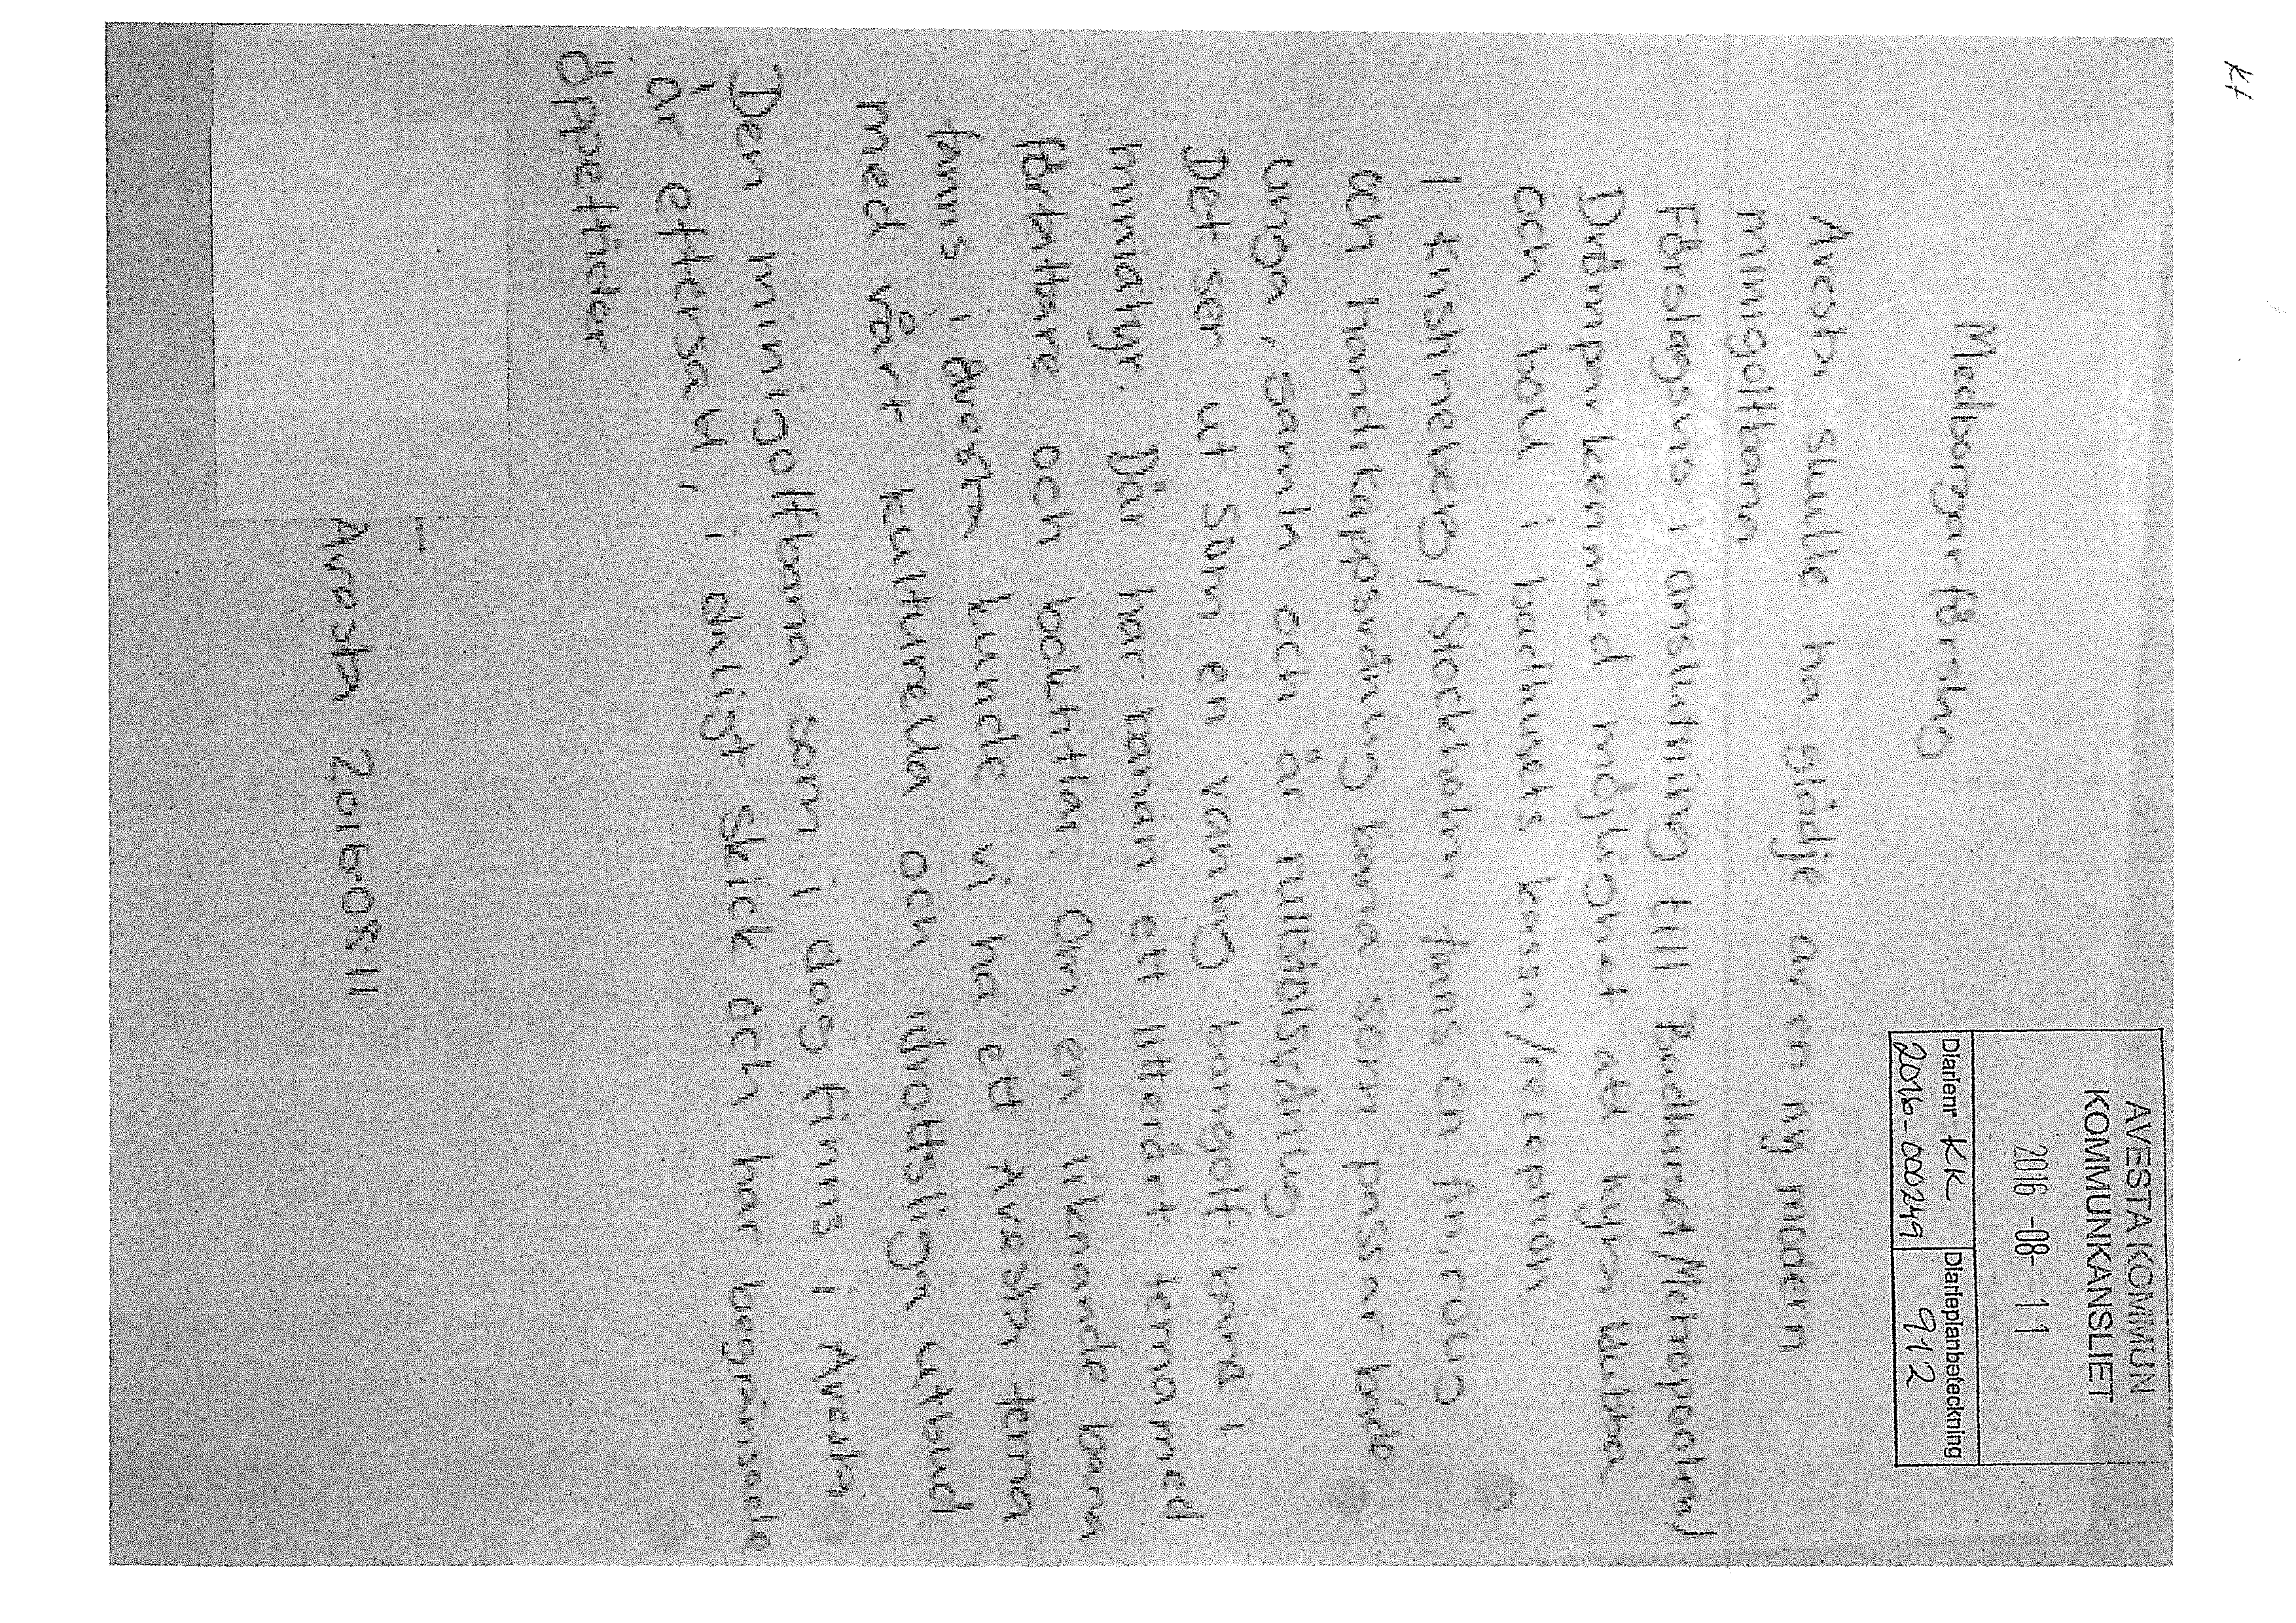 KK
AVESTA KOMMUN
KOMMUNKANSLIET
2016 -08- 11
Diarienr KK
2016-000249
Diarieplanbeteckning
912
Medborgarförslag
Avesta skulle ha glädje av en ny modern
minigolfbana
Förslagsvis i anslutning till Badhuset/Metropoolen/
Döbelns med möjlighet att hyra klubba
och boll i badhusets kassa/reception
I Fisksätra/Stockholm finns en fin rolig
och handikappsvänlig bana som passar både
unga, gamla och är rullstolsvänlig
Det ser ut som en vanlig bangolf bana i
miniatyr. Där har banan ett litterärt tema med
författare och boktitlar. Om en liknande bana
fanns i Avesta kunde vi ha ett Avesta tema
med vårt kulturella och idrottsliga utbud
Den minigolfbana som i dag finns i Avesta
är eftersatt, i dåligt skick och har begränsade
öppettider
Avesta 20160811